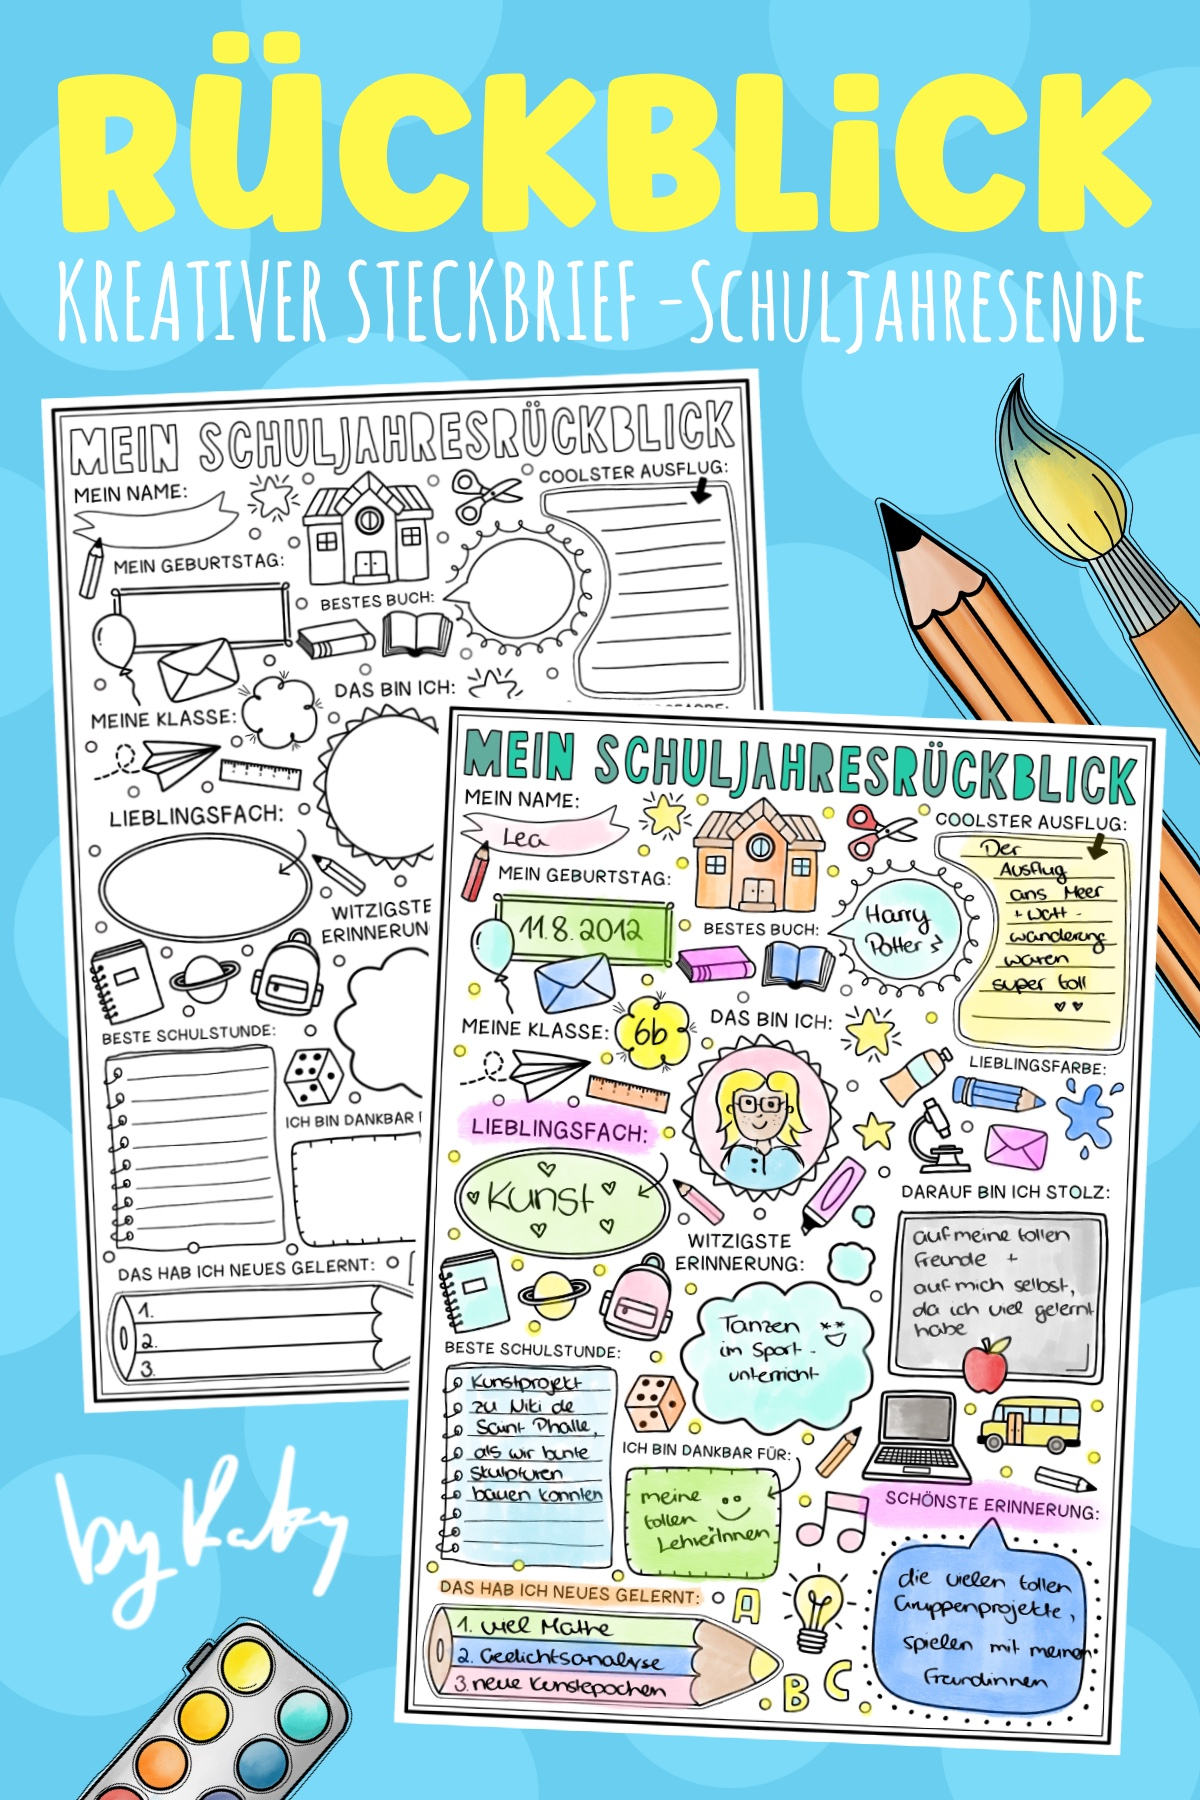 RÜCKBLiCK
KREATIVER STECKBRIEF - SCHULJAHRESENDE
MEIN SCHULJAHRESRÜCKBLICK
MEIN NAME:
COOLSTER AUSFLUG:
MEIN GEBURTSTAG:
BESTES BUCH:
DAS BIN ICH:
MEINE KLASSE:
LIEBLINGSFACH:
WITZIGSTE
ERINNERUN
BESTE SCHULSTUNDE:
ICH BIN DANKBAR
DAS HAB ICH NEUES GELERNT:
1.
2.
3.
MEIN SCHULJAHRESRÜCKBLICK
MEIN NAME:
Lea
COOLSTER AUSFLUG:
Der
Ausflug
ans Meer
+ Watt-
wanderung
waren
super toll
MEIN GEBURTSTAG:
11.8.2012
BESTES BUCH:
Harry
Potter
MEINE KLASSE:
6b
DAS BIN ICH:
LIEBLINGSFARBE:
LIEBLINGSFACH:
Kunst
DARAUF BIN ICH STOLZ:
auf meine tollen
Freunde +
auf mich selbst,
da ich viel gelernt
habe
WITZIGSTE
ERINNERUNG:
Tanzen
im Sport-
unterricht
BESTE SCHULSTUNDE:
Kunstprojekt
zu Niki de
Saint Phalle,
als wir bunte
Skulpturen
bauen konnten
ICH BIN DANKBAR FÜR:
meine
tollen
LehrerInnen
SCHÖNSTE ERINNERUNG:
die vielen tollen
Gruppenprojekte,
spielen mit meinen
Freundinnen
DAS HAB ICH NEUES GELERNT:
1. viel Mathe
2. Gedichtsanalyse
3. neue Kunstepochen
A
B C
by Raby